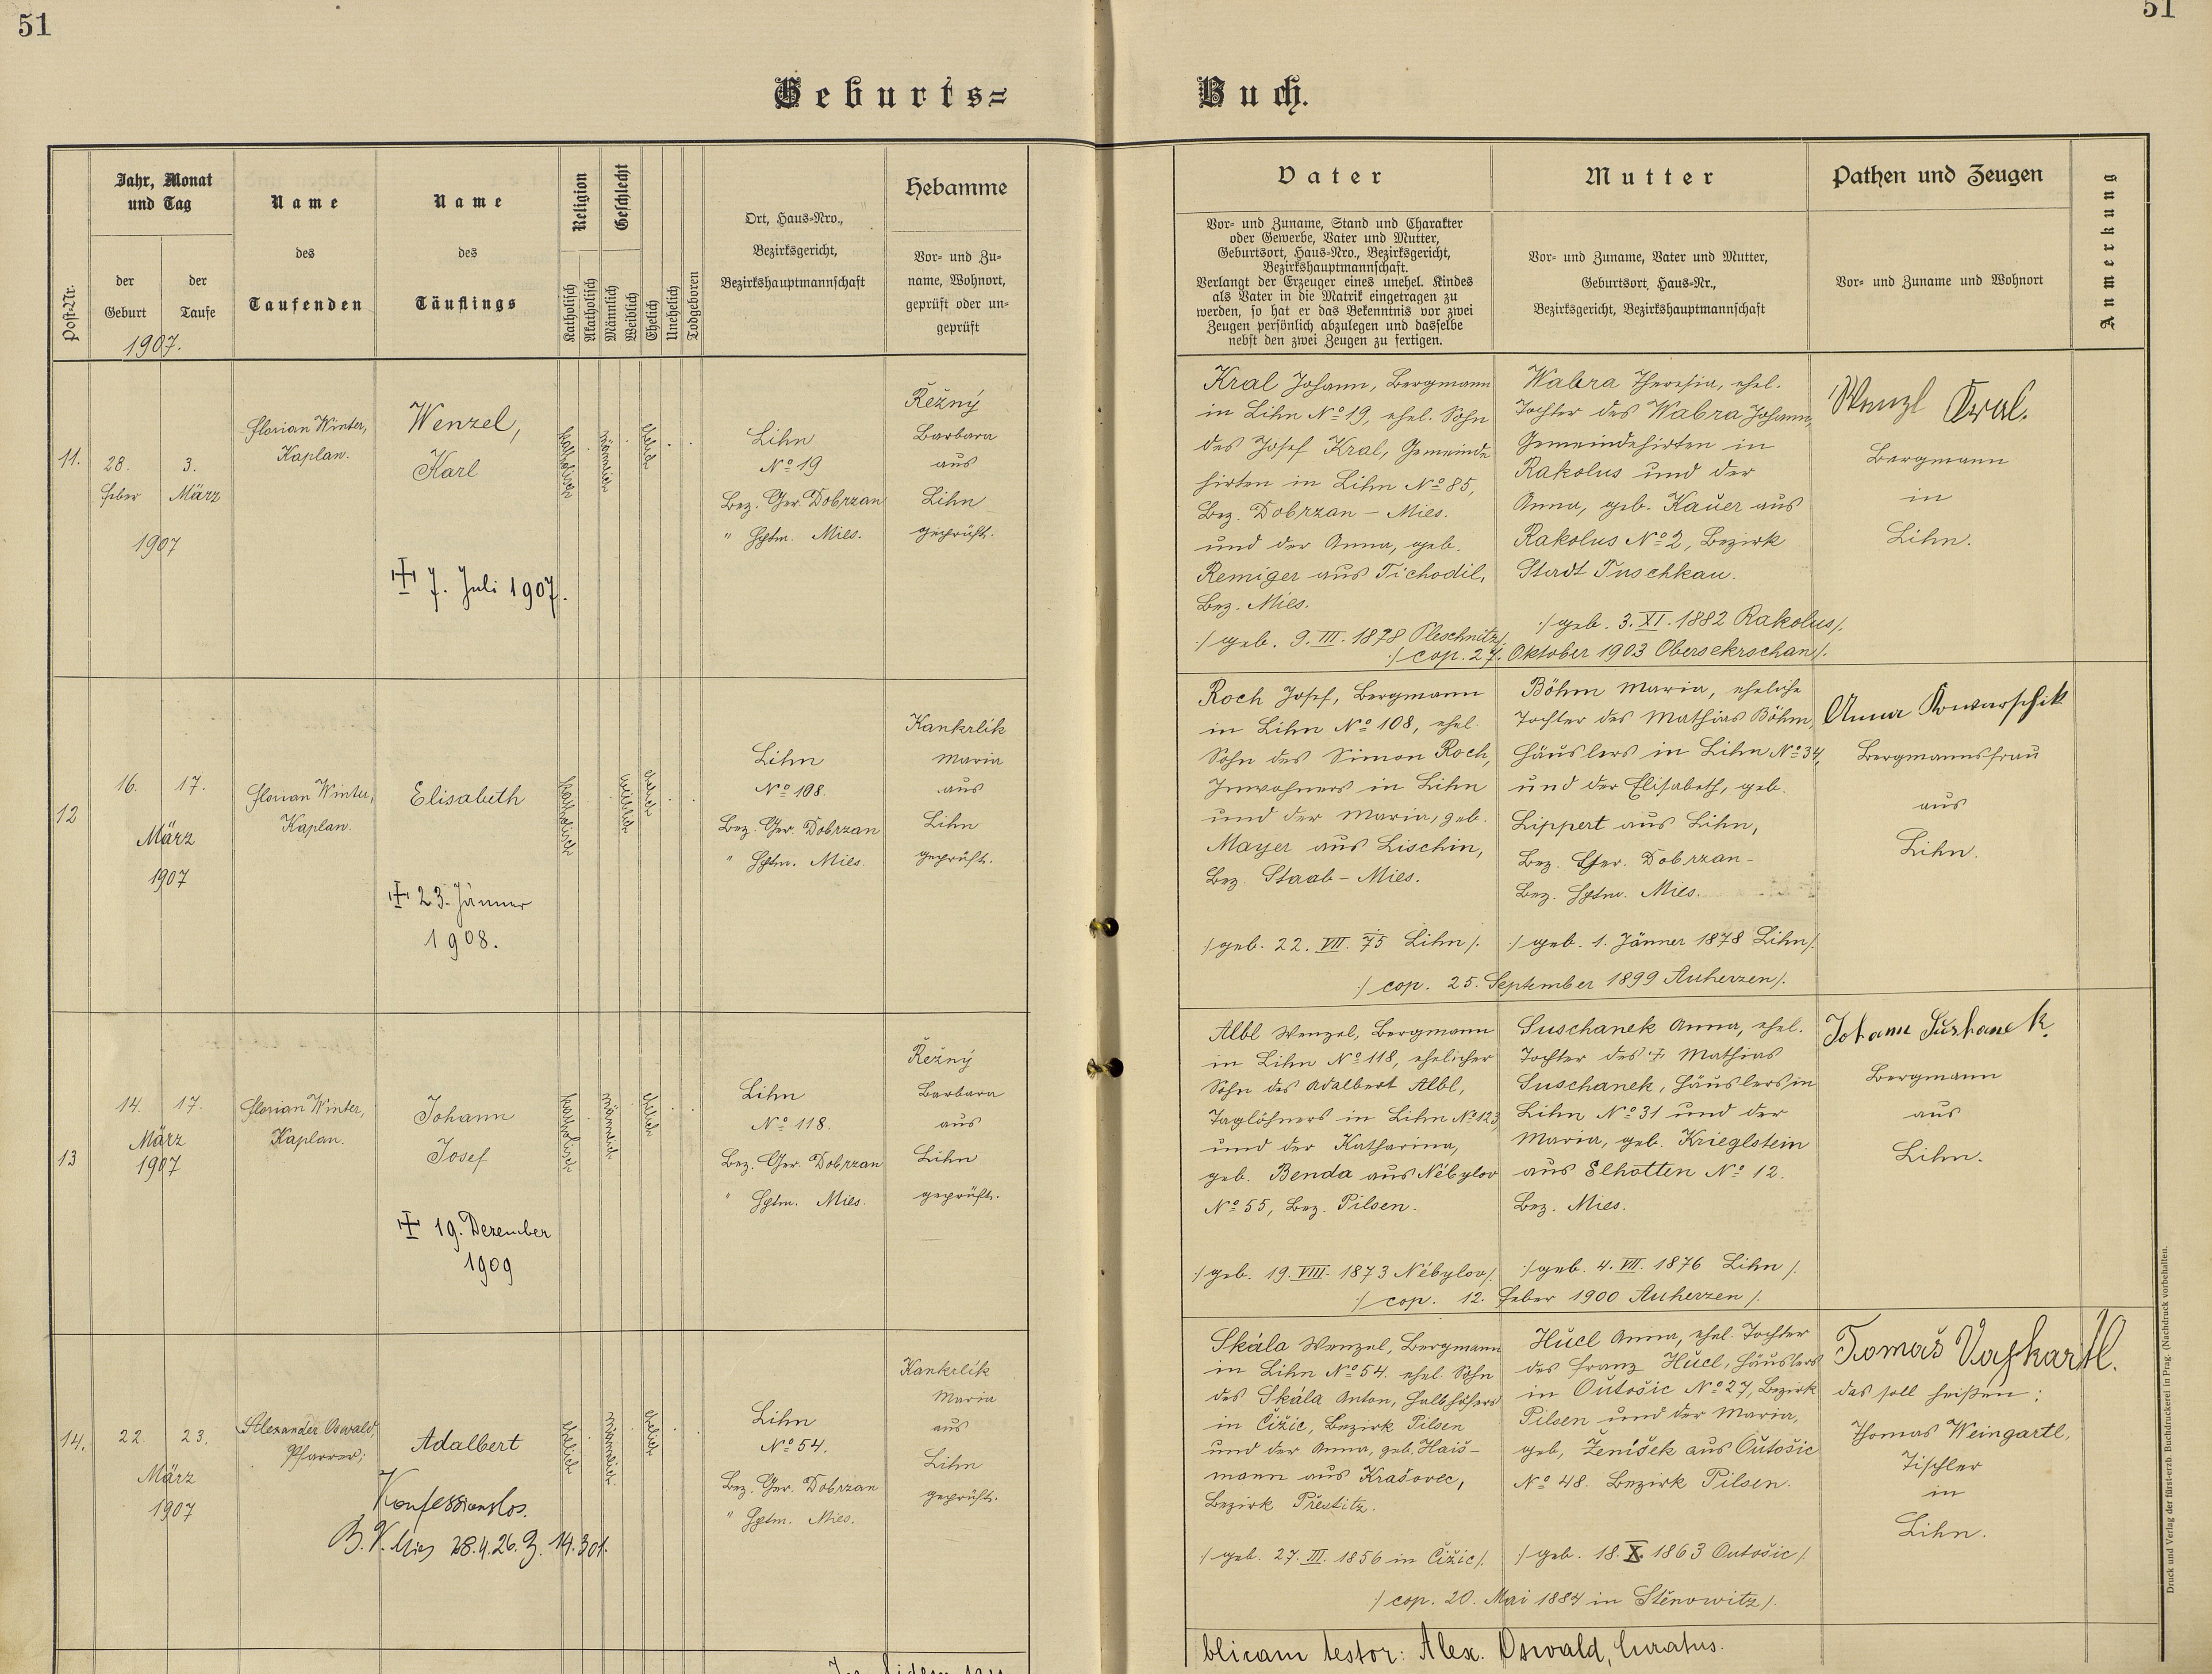 51
51
Geburts=
Buch.
Post-Nr.
Jahr, Monat
und Tag
der
Geburt
der
Taufe
1907.
Name
des
Taufenden
Name
des
Täuflings
Religion
Katholisch
Akatholisch
Geschlecht
Männlich
Weiblich
Ehelich
Unehelich
Todgeboren
Ort, Haus-Nro.,
Bezirksgericht,
Bezirkshauptmannschaft
Hebamme
Vor- und Zu-
name, Wohnort,
geprüft oder un-
geprüft
Vater
Vor- und Zuname, Stand und Charakter
oder Gewerbe, Vater und Mutter,
Geburtsort, Haus-Nro., Bezirksgericht,
Bezirkshauptmannschaft.
Verlangt der Erzeuger eines unehel. Kindes
als Vater in die Matrik eingetragen zu
werden, so hat er das Bekenntnis vor zwei
Zeugen persönlich abzulegen und dasselbe
nebst den zwei Zeugen zu fertigen.
Mutter
Vor- und Zuname, Vater und Mutter,
Geburtsort, Haus-Nr.,
Bezirksgericht, Bezirkshauptmannschaft
Pathen und Zeugen
Vor- und Zuname und Wohnort
Anmerkung
11.
28.
Feber
3.
März
1907
Florian Winter,
Kaplan.
Wenzel,
Karl
7. Juli 1907.
katholisch
männlich
ehelich
Lihn
No 19
Bez. Ger. Dobrzan
" Hptm. Mies.
Řežný
Barbara
aus
Lihn
geprüft.
Kral Johann, Bergmann
in Lihn No 19, ehel. Sohn
des Josef Kral, Gemeinde
hirten in Lihn No 85,
Bez. Dobrzan – Mies.
und der Anna, geb.
Remiger aus Tichodil,
Bez. Mies.
:/ geb. 9. III. 1878 Pleschnitz /:
Wabra Theresia, ehel.
Tochter des Wabra Johann,
Gemeindehirten in
Rakolus und der
Anna, geb. Kauer aus
Rakolus No 2, Bezirk
Stadt Tuschkau.
:/ geb. 3. XI. 1882 Rakolus /.
:/ cop. 27. Oktober 1903 Obersekrschan /.
Wenzl Kral.
Bergmann
in
Lihn.
12
16.
17.
März
1907
Florian Winter,
Kaplan.
Elisabeth
23. Jänner
1908.
katholisch
weiblich
ehelich
Lihn
No 108.
Bez. Ger. Dobrzan
" Hptm. Mies.
Kankrlík
Maria
aus
Lihn
geprüft.
Roch Josef, Bergmann
in Lihn No 108, ehel.
Sohn des Simon Roch,
Inwohners in Lihn
und der Maria, geb.
Mayer aus Lischin,
Bez. Staab – Mies.
:/ geb. 22. VII. 75 Lihn /.
Böhm Maria, eheliche
Tochter des Mathias Böhm,
Häuslers in Lihn No 34,
und der Elisabeth, geb.
Lippert aus Lihn,
Bez. Ger. Dobrzan –
Bez. Hptm. Mies.
:/ geb. 1. Jänner 1878 Lihn /.
:/ cop. 25. September 1899 Auherzen /.
Anna Kowarschik
Bergmannsfrau
aus
Lihn.
13
14.
17.
März
1907
Florian Winter,
Kaplan.
Johann
Josef
19. Dezember
1909
katholisch
männlich
ehelich
Lihn
No 118.
Bez. Ger. Dobrzan
" Hptm. Mies.
Řežný
Barbara
aus
Lihn
geprüft.
Albl Wenzel, Bergmann
in Lihn No 118, ehelicher
Sohn des Adalbert Albl,
Taglöhners in Lihn No 123
und der Katharina,
geb. Benda aus Nébylov
No 55, Bez. Pilsen.
:/ geb. 19. VIII. 1873 Nébylov /.
Suschanek Anna, ehel.
Tochter des † Mathias
Suschanek, Häuslers in
Lihn No 31 und der
Maria, geb. Krieglstein
aus Elhotten No 12.
Bez. Mies.
:/ geb. 4. VII. 1876 Lihn /.
:/ cop. 12. Feber 1900 Auherzen /.
Johann
Bergmann
aus
Lihn.
14.
22.
23.
März
1907
Alexander Oswald,
Pfarrer;
Adalbert
Konfessionslos.
B. V. Mies 28.4.26. Z. 14.301.
ehelich
männlich
ehelich
Lihn
No 54.
Bez. Ger. Dobrzan
" Hptm. Mies.
Kankrlík
Maria
aus
Lihn
geprüft.
Skála Wenzel, Bergmann
in Lihn No 54. ehel. Sohn
des Skála Anton, Halbhöfers
in Čižic, Bezirk Pilsen
und der Anna, geb. Haiš-
mann aus Krašovec,
Bezirk Přestitz.
:/ geb. 27. III. 1856 in Čižic /.
Hucl Anna, ehel. Tochter
des Franz Hucl, Häuslers
in Outošic No 27, Bezirk
Pilsen und der Maria,
geb, Ženíšek aus Outošic
No 48. Bezirk Pilsen.
:/ geb. 18. X. 1863 Outošic /.
:/ cop. 20. Mai 1884 in Stěnowitz /.
Tomaš
das soll heißen:
Thomas Weingartl,
Tischler
in
Lihn.
blicam testor: Alex. Oswald, Curatus.
Druck und Verlag der fürst-erzb. Buchdruckerei in Prag. (Nachdruck vorbehalten.